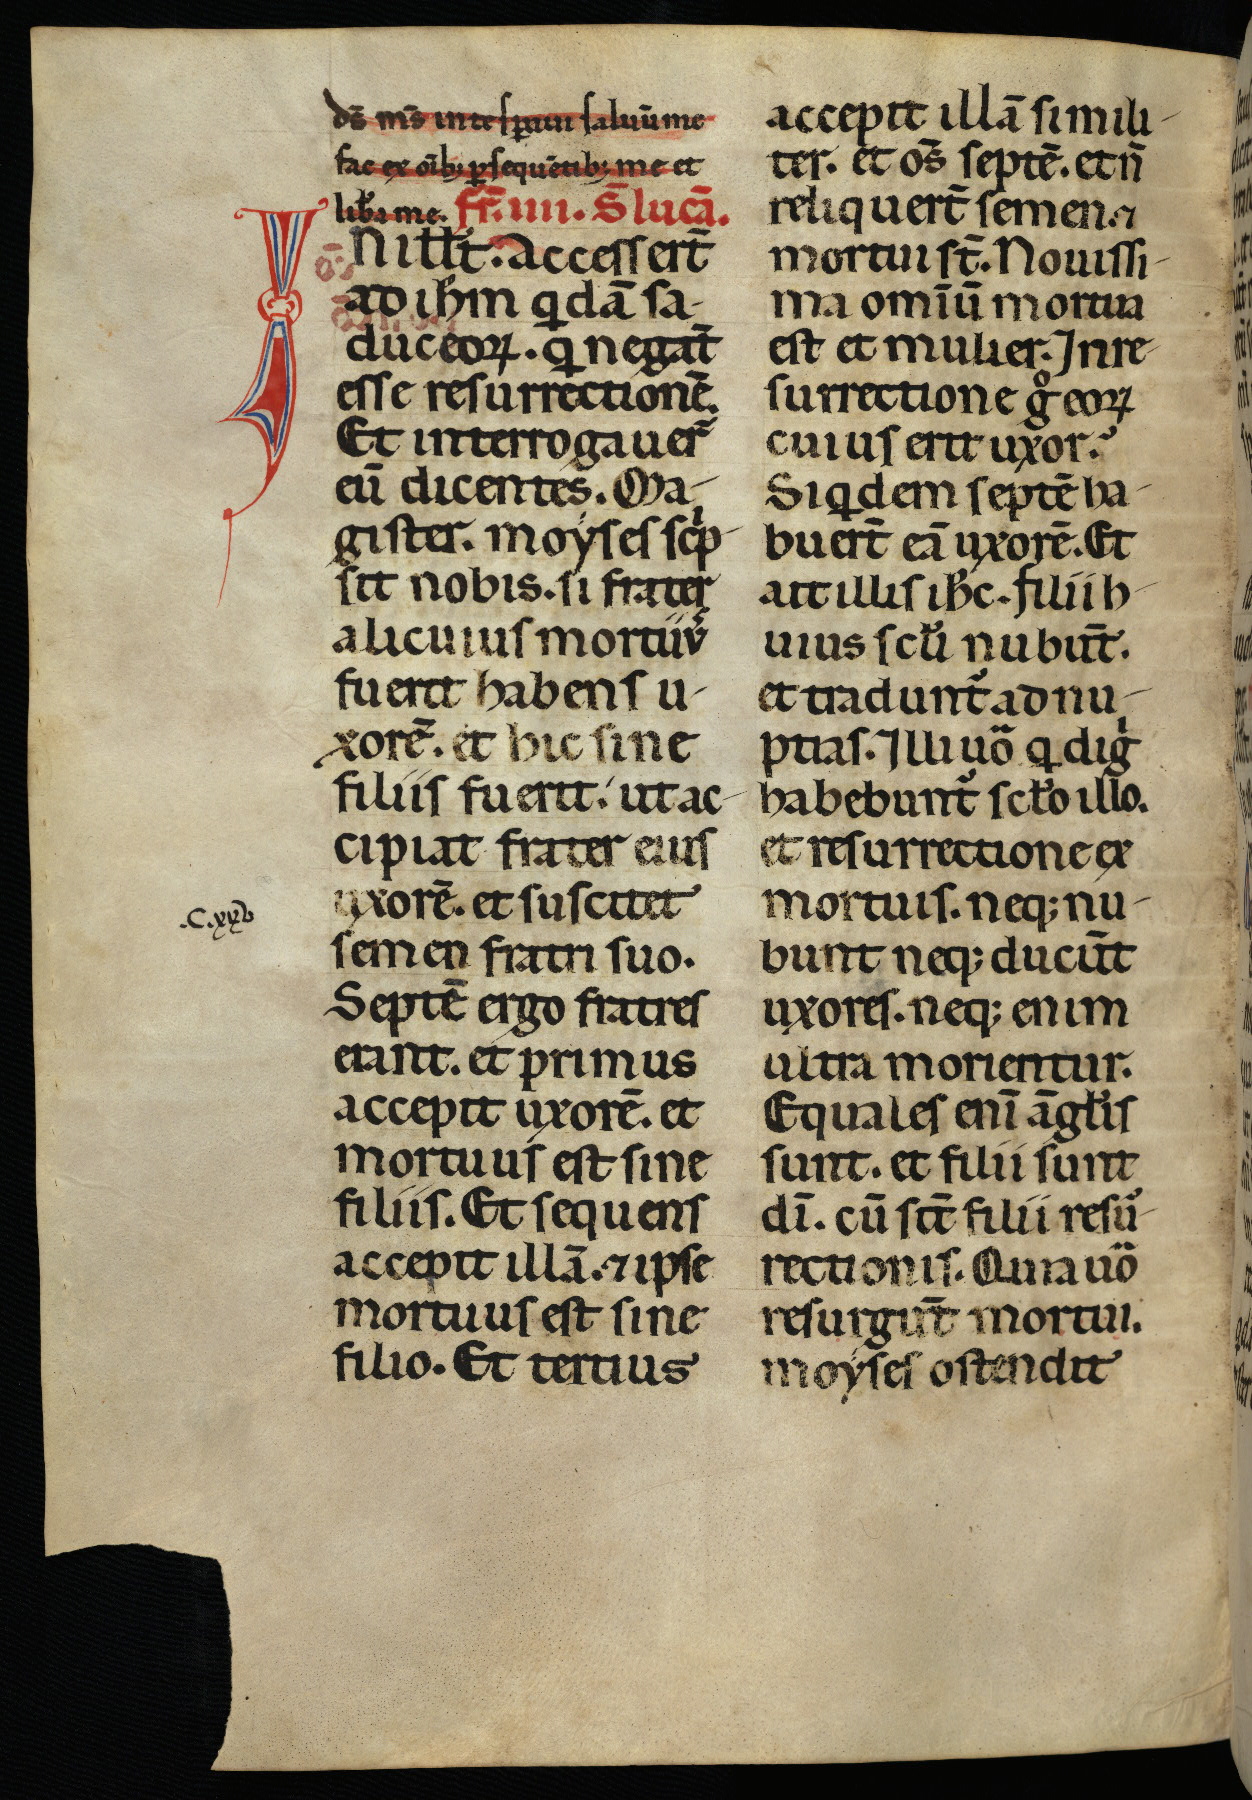 ds̄ ms̄ in te speraui saluū me
fac ex oīb; ꝑsequētib; me et
lib̾a me. fr̄. iiii. S̄ lucā.
IN ill̄ t̄. Accessert̄
ad ih̄m qdā sa-
duceoꝝ. qi negāt
esse resurrectionē.
Et interrogauer̄
eū dicentes. Ma-
gister. moyses scͥp-
sit nobis. si frater
alicuius mortuꝰ
fuerit habens u-
xorē. et hic sine
filiis fuerit. ut ac-
cipiat frater eius
.C.xxv
uxorē. et suscitet
semen fratri suo.
Septē ergo fratres
erant. et primus
accepit uxorē. et
mortuus est sine
filiis. Et sequens
accepit illā. ⁊ ipse
mortuus est sine
filio. Et tertius
accepit illā simili-
ter. et os̄ septē. et n̄
reliquert̄ semen. ⁊
mortui st̄. Nouissi-
ma omīū mortua
est et mulier. In re-
surrectione gͦ eoꝝ
cuius erit uxor.
Siqdem septē ha-
buert̄ eā uxorē. Et
ait illis ih̄c. filii h-
uius sc̄li nubūt.
et tradunt᷑ ad nu-
ptias. Illi uͦo q diḡ
habebunt᷑ sc̄lo illo.
et resurrectione ex
mortuis. neq; nu-
bunt neq; ducūt
uxores. neq; enim
ultra morientur.
Equales enī āgl̄is
sunt. et filii sunt
dī. cū sīt filii resur-
rectionis. Quia uͦo
resurgūt mortui.
moyses ostendit